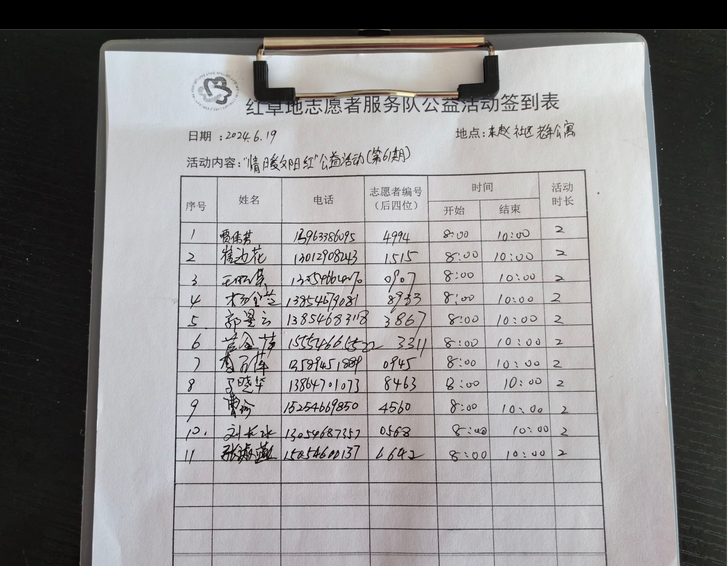 红草地志愿者服务队公益活动签到表
日期：2024.6.19 地点：来赵社区老年公寓
活动内容："情暖夕阳红"公益活动(第61期)
序号 姓名 电话 志愿者编号（后四位） 时间 开始 结束 活动时长
1 4994 8:00 10:00 2
2 崔边花 13012908243 1515 8:00 10:00 2
3 0907 8:00 10:00 2
4 13854679081 8933 8:00 10:00 2
5 郭景云 13854683118 3867 8:00 10:00 2
6 15554665522 3311 8:00 10:00 2
7 13589451889 0945 8:00 10:00 2
8 丁晓华 13864701073 8463 8:00 10:00 2
9 曹玲 15254669850 4560 8:00 10:00 2
10. 刘长冰 13054687357 0568 8:00 10:00 2
11 6642 8:00 10:00 2